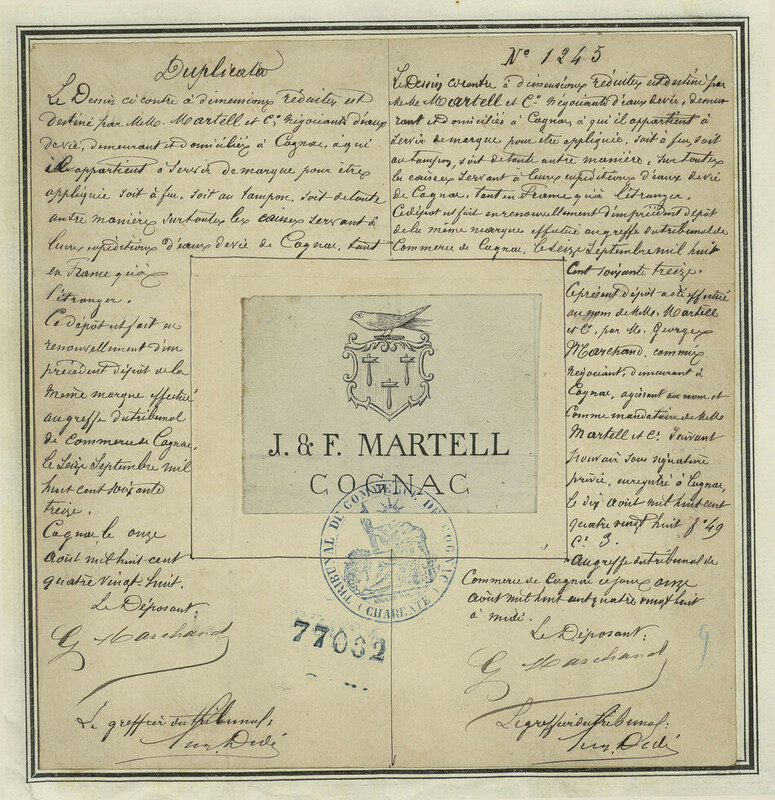 Duplicata
Le Dessin ci contre à dimensions réduites est
destiné par MM. Martell et Cie, négociants d'eaux
de vie, demeurant et domiciliés à Cognac, à qui
il appartient à servir de marque pour être
appliquée soit à feu, soit au tampon, soit de toute
autre manière sur toutes les caisses servant à
leurs expéditions d'eaux de vie de Cognac, tant
en France qu'à
l'étranger.
Ce dépôt est fait en
renouvellement d'un
précédent dépôt de la
même marque effectué
au greffe du tribunal
de Commerce de Cognac,
le Seize Septembre mil
huit cent soixante
treize.
Cognac, le onze
août mil huit cent
quatre vingt huit.
Le Déposant.
G Marchand
Le greffier du tribunal:
Didé
N° 1245
Le Dessin ci contre à dimensions réduites est destiné par
MM. Martell et Cie négociants d'eaux de vie, demeu-
rant et domiciliés à Cognac, à qui il appartient à
servir de marque pour être appliquée, soit à feu, soit
au tampon, soit de toute autre manière, sur toutes
les caisses servant à leurs expéditions d'eaux de vie
de Cognac, tant en France qu'à l'étranger.
Ce dépôt est fait en renouvellement d'un précédent dépôt
de la même marque effectué au greffe du tribunal de
Commerce de Cognac, le Seize Septembre mil huit
cent soixante treize.
Ce présent dépôt a été effectué
au nom de MM. Martell
et Cie, par M. Georges
Marchand, commis
négociant, demeurant à
Cognac, agissant au nom et
comme mandataire de MM
Martell et Cie suivant
pouvoir sous signature
privée, enregistré à Cognac,
le dix août mil huit cent
quatre vingt huit fo 49
Co 3.
Au greffe du tribunal de
Commerce de Cognac ce jour onze
août mil huit cent quatre vingt huit
à midi.
Le Déposant:
G Marchand
Le greffier du tribunal:
Didé
J. & F. MARTELL
COGNAC
TRIBUNAL DE COMMERCE DE COGNAC
(CHARENTE)
77032
9